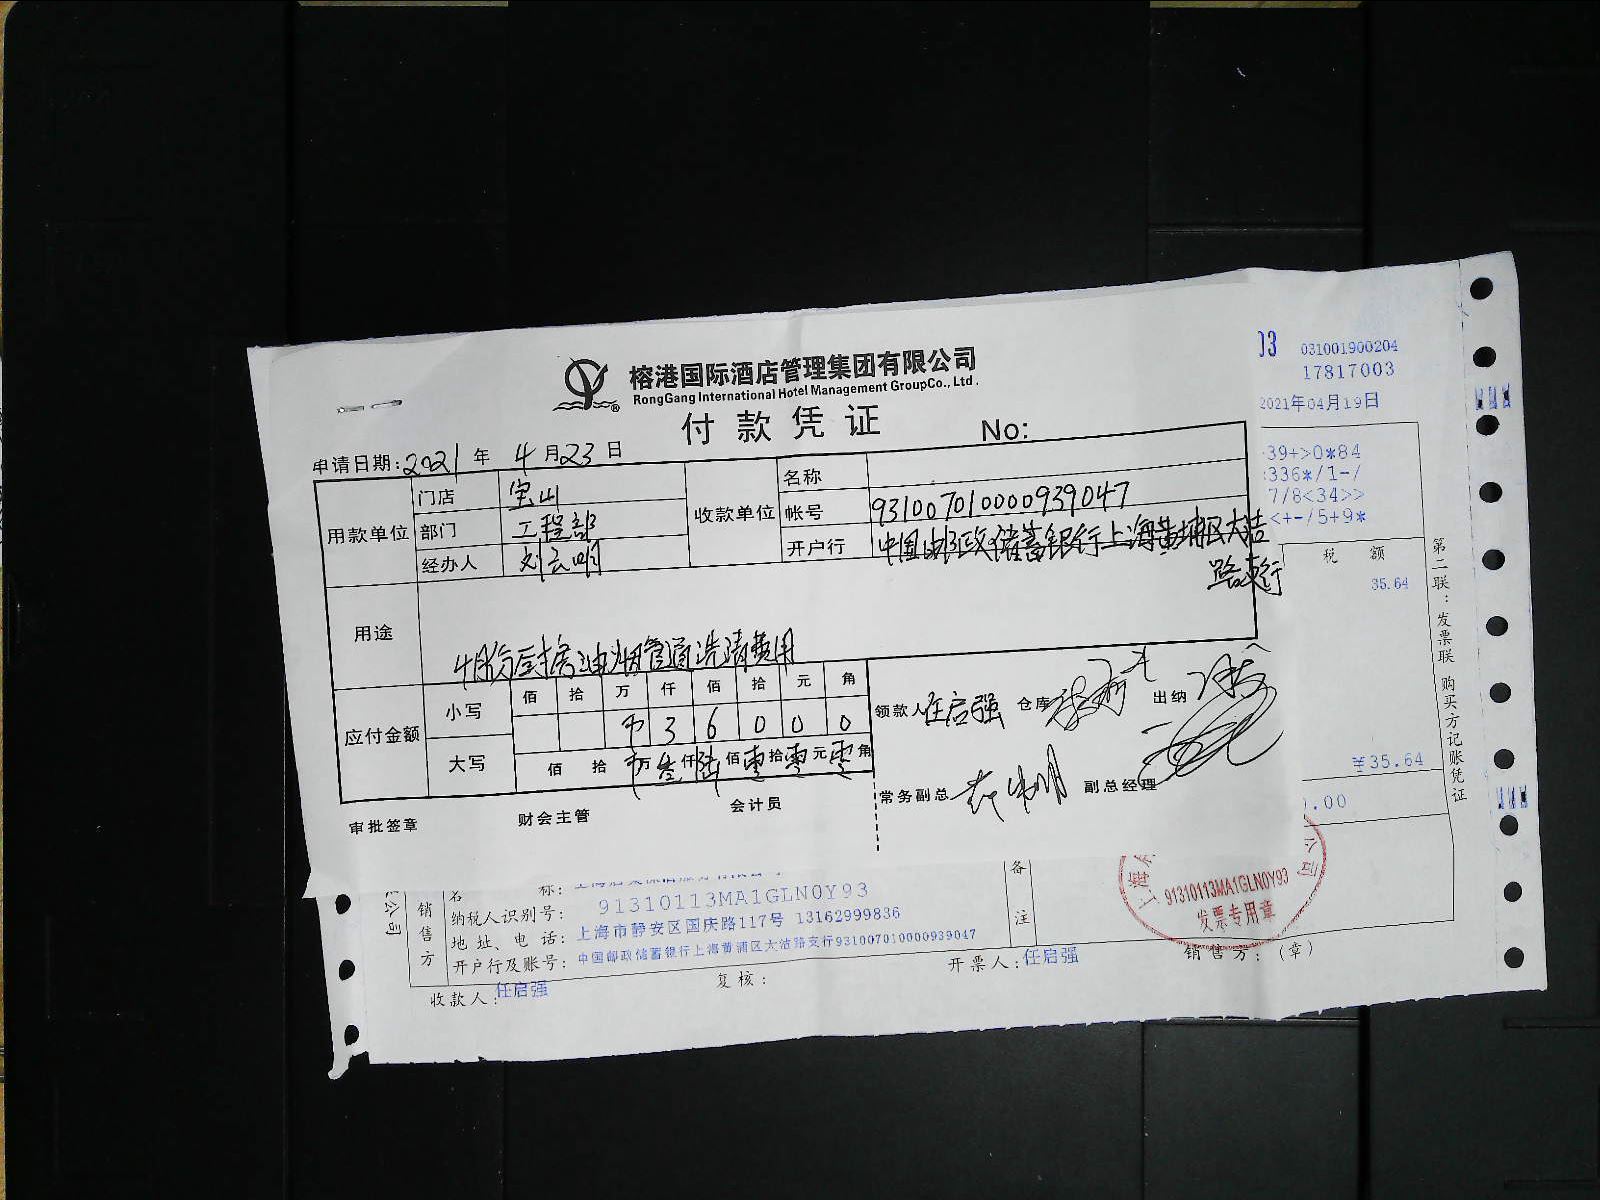 榕港国际酒店管理集团有限公司
RongGang International Hotel Management GroupCo., Ltd.
付款凭证
No:
申请日期: 2021 年 4 月 23 日
用款单位
门店 宝山
部门 工程部
经办人 刘云明
收款单位
名称
帐号 931007010000939047
开户行 中国邮政储蓄银行上海黄埔区大沽
路支行
用途
4月份厨房油烟管通洗清费用
应付金额
小写
佰 拾 万 仟 佰 拾 元 角
3 6 0 0 0
大写
佰 拾 万 叁 仟 陆 佰 零 拾 零 元 零 角
领款人 任启强 仓库 出纳
常务副总 副总经理
审批签章 财会主管 会计员
03 031001900204
17817003
2021年04月19日
39+>0*84
336*/1-/
7/8<34>>
<+-/5+9*
税 额
35.64
¥35.64
.00
第二联：发票联 购买方记账凭证
公司
销售方
名 称:
纳税人识别号: 91310113MA1GLN0Y93
地址、电话: 上海市静安区国庆路117号 13162999836
开户行及账号: 中国邮政储蓄银行上海黄浦区大沽路支行931007010000939047
备注
收款人: 任启强
复核:
开票人: 任启强
销售方: (章)
91310113MA1GLN0Y93
发票专用章